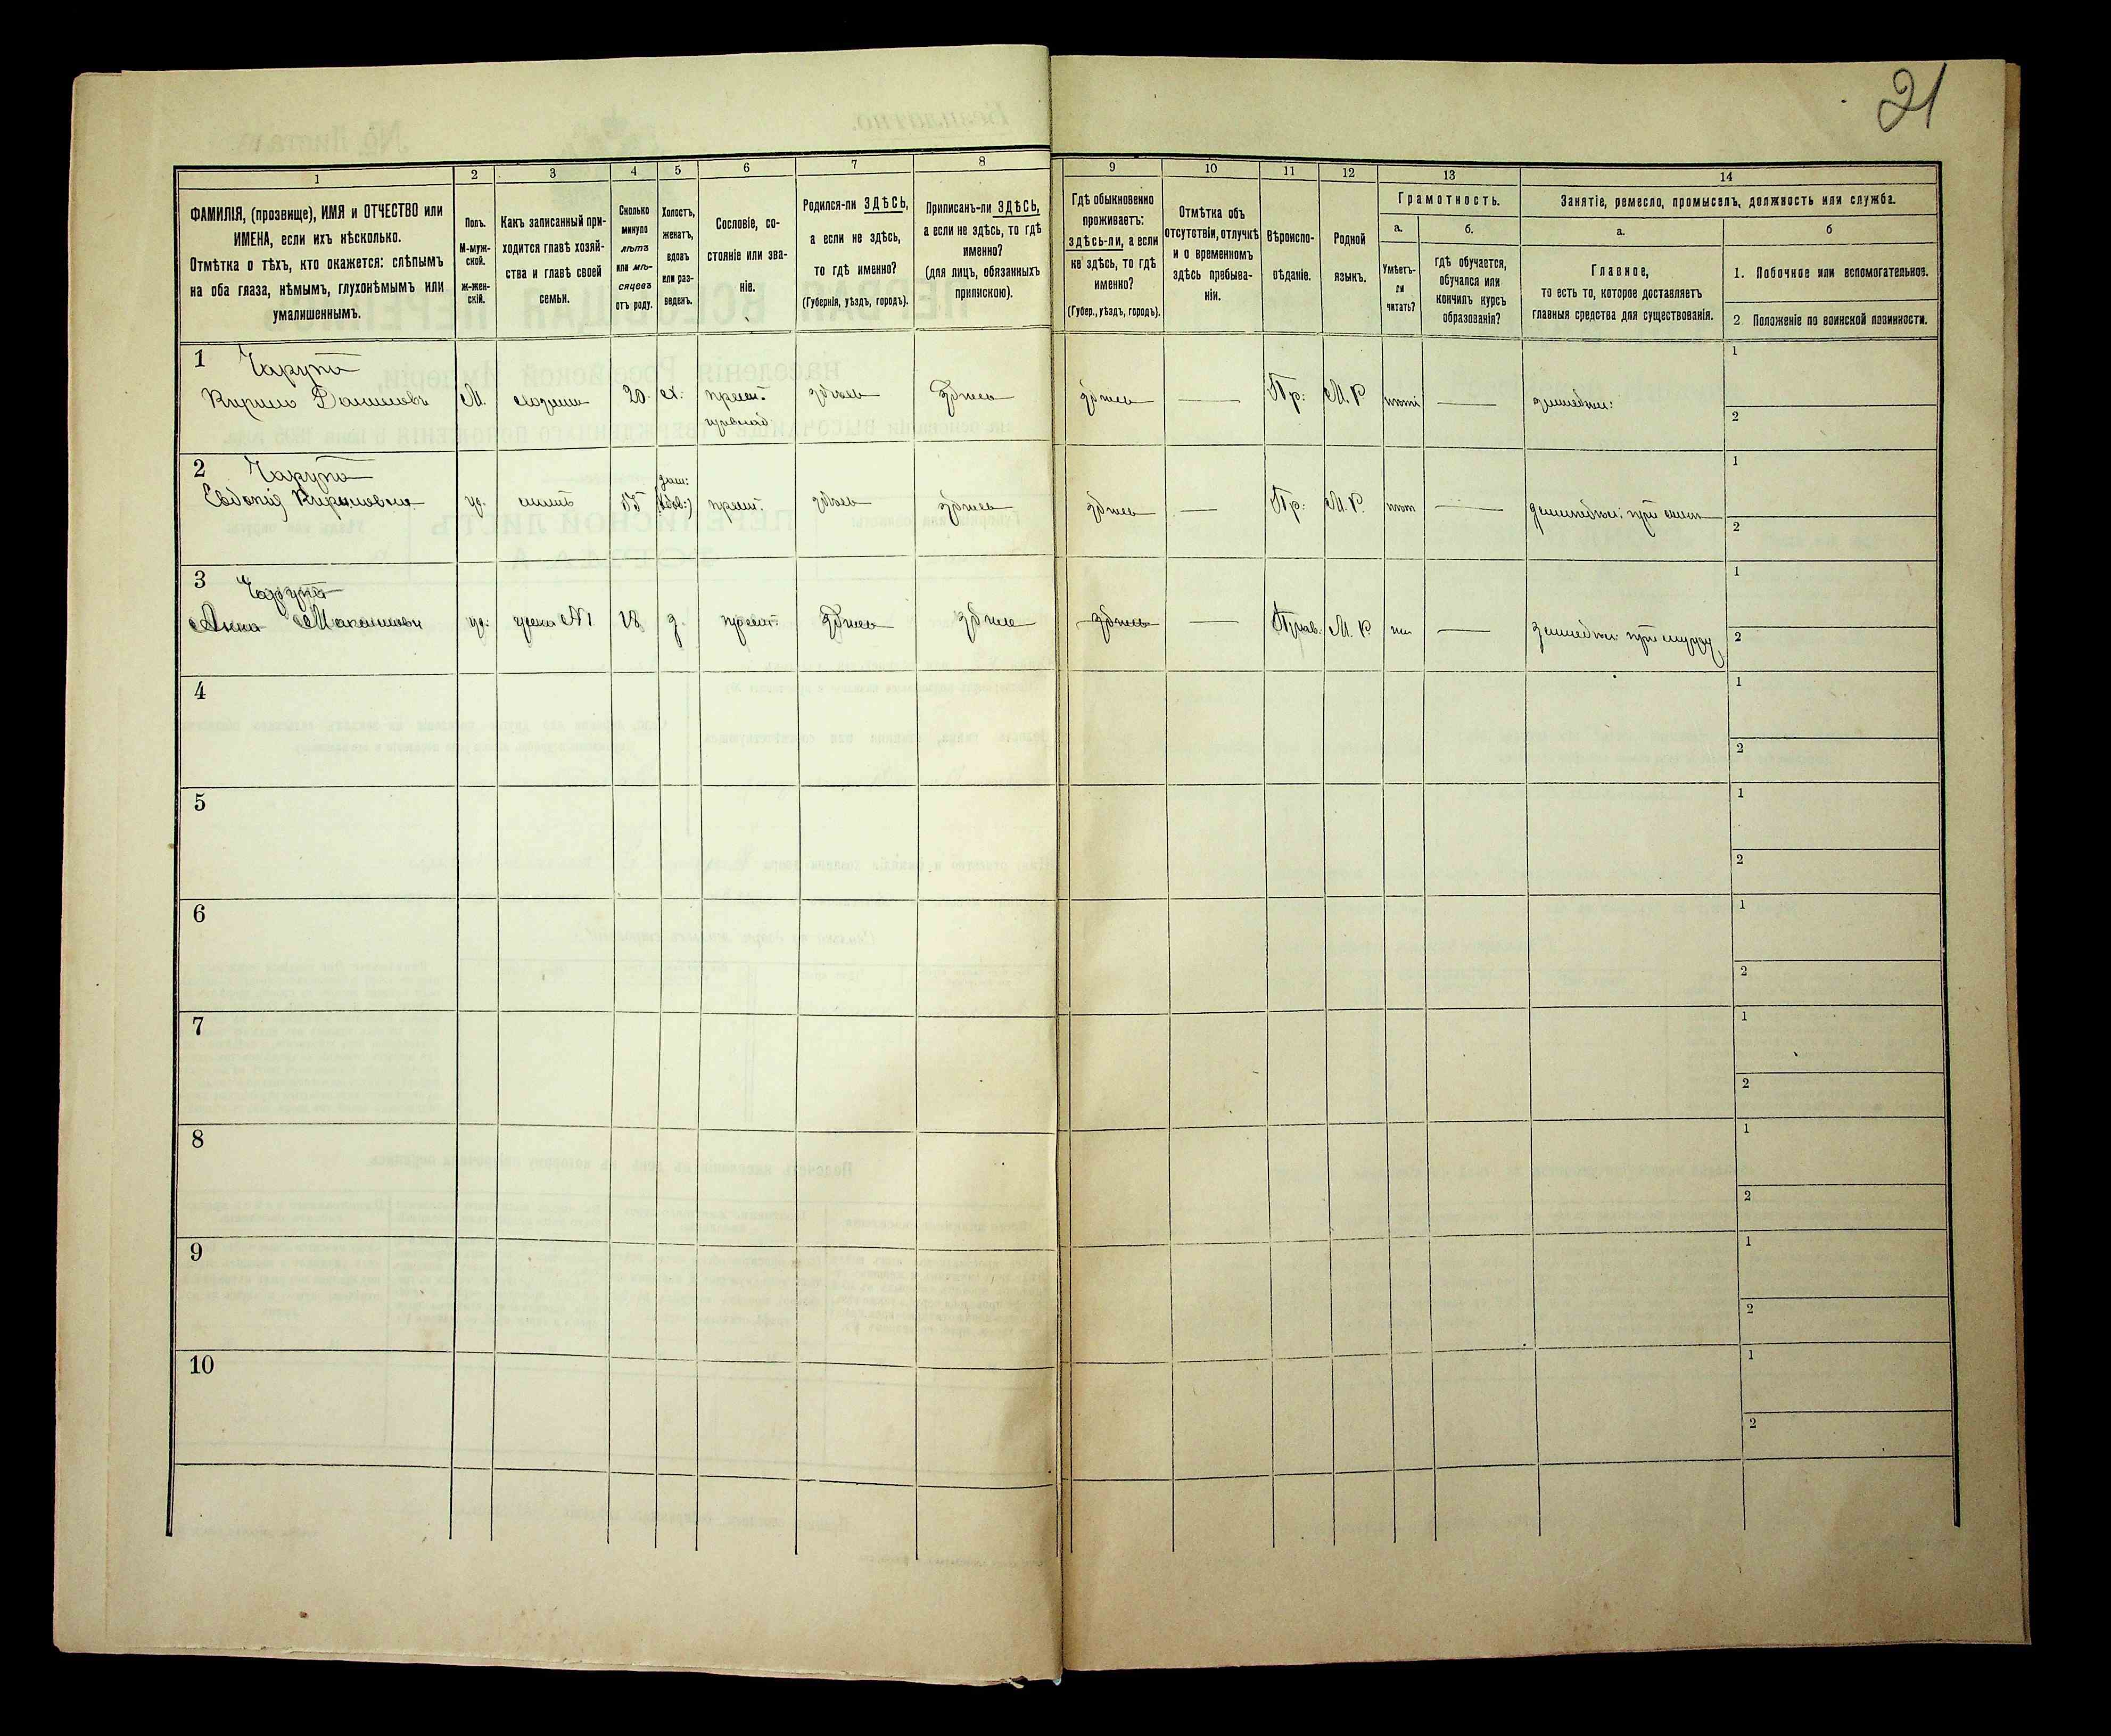 21
1
2
3
4
5
6
7
8
9
10
11
12
13
14
ФАМИЛІЯ, (прозвище), ИМЯ и ОТЧЕСТВО или
ИМЕНА, если ихъ нѣсколько.
Отмѣтка о тѣхъ, кто окажется: слѣпымъ
на оба глаза, нѣмымъ, глухонѣмымъ или
умалишеннымъ.
Полъ.
М-муж-
ской.
ж-жен-
скій.
Какъ записанный при-
ходится главѣ хозяй-
ства и главѣ своей
семьи.
Сколько
минуло
лѣтъ
или мѣ-
сяцевъ
отъ роду.
Холостъ,
женатъ,
вдовъ
или раз-
веденъ.
Сословіе, со-
стояніе или зва-
ніе.
Родился-ли ЗДѢСЬ,
а если не здѣсь,
то гдѣ именно?
(Губернія, уѣздъ, городъ).
Приписанъ-ли ЗДѢСЬ,
а если не здѣсь, то гдѣ
именно?
(для лицъ, обязанныхъ
припискою).
Гдѣ обыкновенно
проживаетъ:
здѣсь-ли, а если
не здѣсь, то гдѣ
именно?
(Губер., уѣздъ, городъ).
Отмѣтка объ
отсутствіи, отлучкѣ
и о временномъ
здѣсь пребыва-
ніи.
Вѣроиспо-
вѣданіе.
Родной
языкъ.
Грамотность.
а.
Умѣетъ-
ли
читать?
б.
гдѣ обучается,
обучался или
кончилъ курсъ
образованія?
Занятіе, ремесло, промыселъ, должность или служба.
а.
Главное,
то есть то, которое доставляетъ
главныя средства для существованія.
б
1. Побочное или вспомогательное.
2. Положеніе по воинской повинности.
1
Чарупа
Кирило Даниловъ
М.
хозяинъ
20.
х.
крест.
здѣсь
здѣсь
здѣсь
Пр:
М. Р
1
2
2
Чарупа
Евдокія
ж.
мать
55
крест.
здѣсь
здѣсь
здѣсь
Пр:
М. Р.
1
2
3
Чарупа
Анна
ж.
жена №1
18
з.
крест.
здѣсь
здѣсь
здѣсь
Прав.
М. Р
1
2
4
1
2
5
1
2
6
1
2
7
1
2
8
1
2
9
1
2
10
1
2